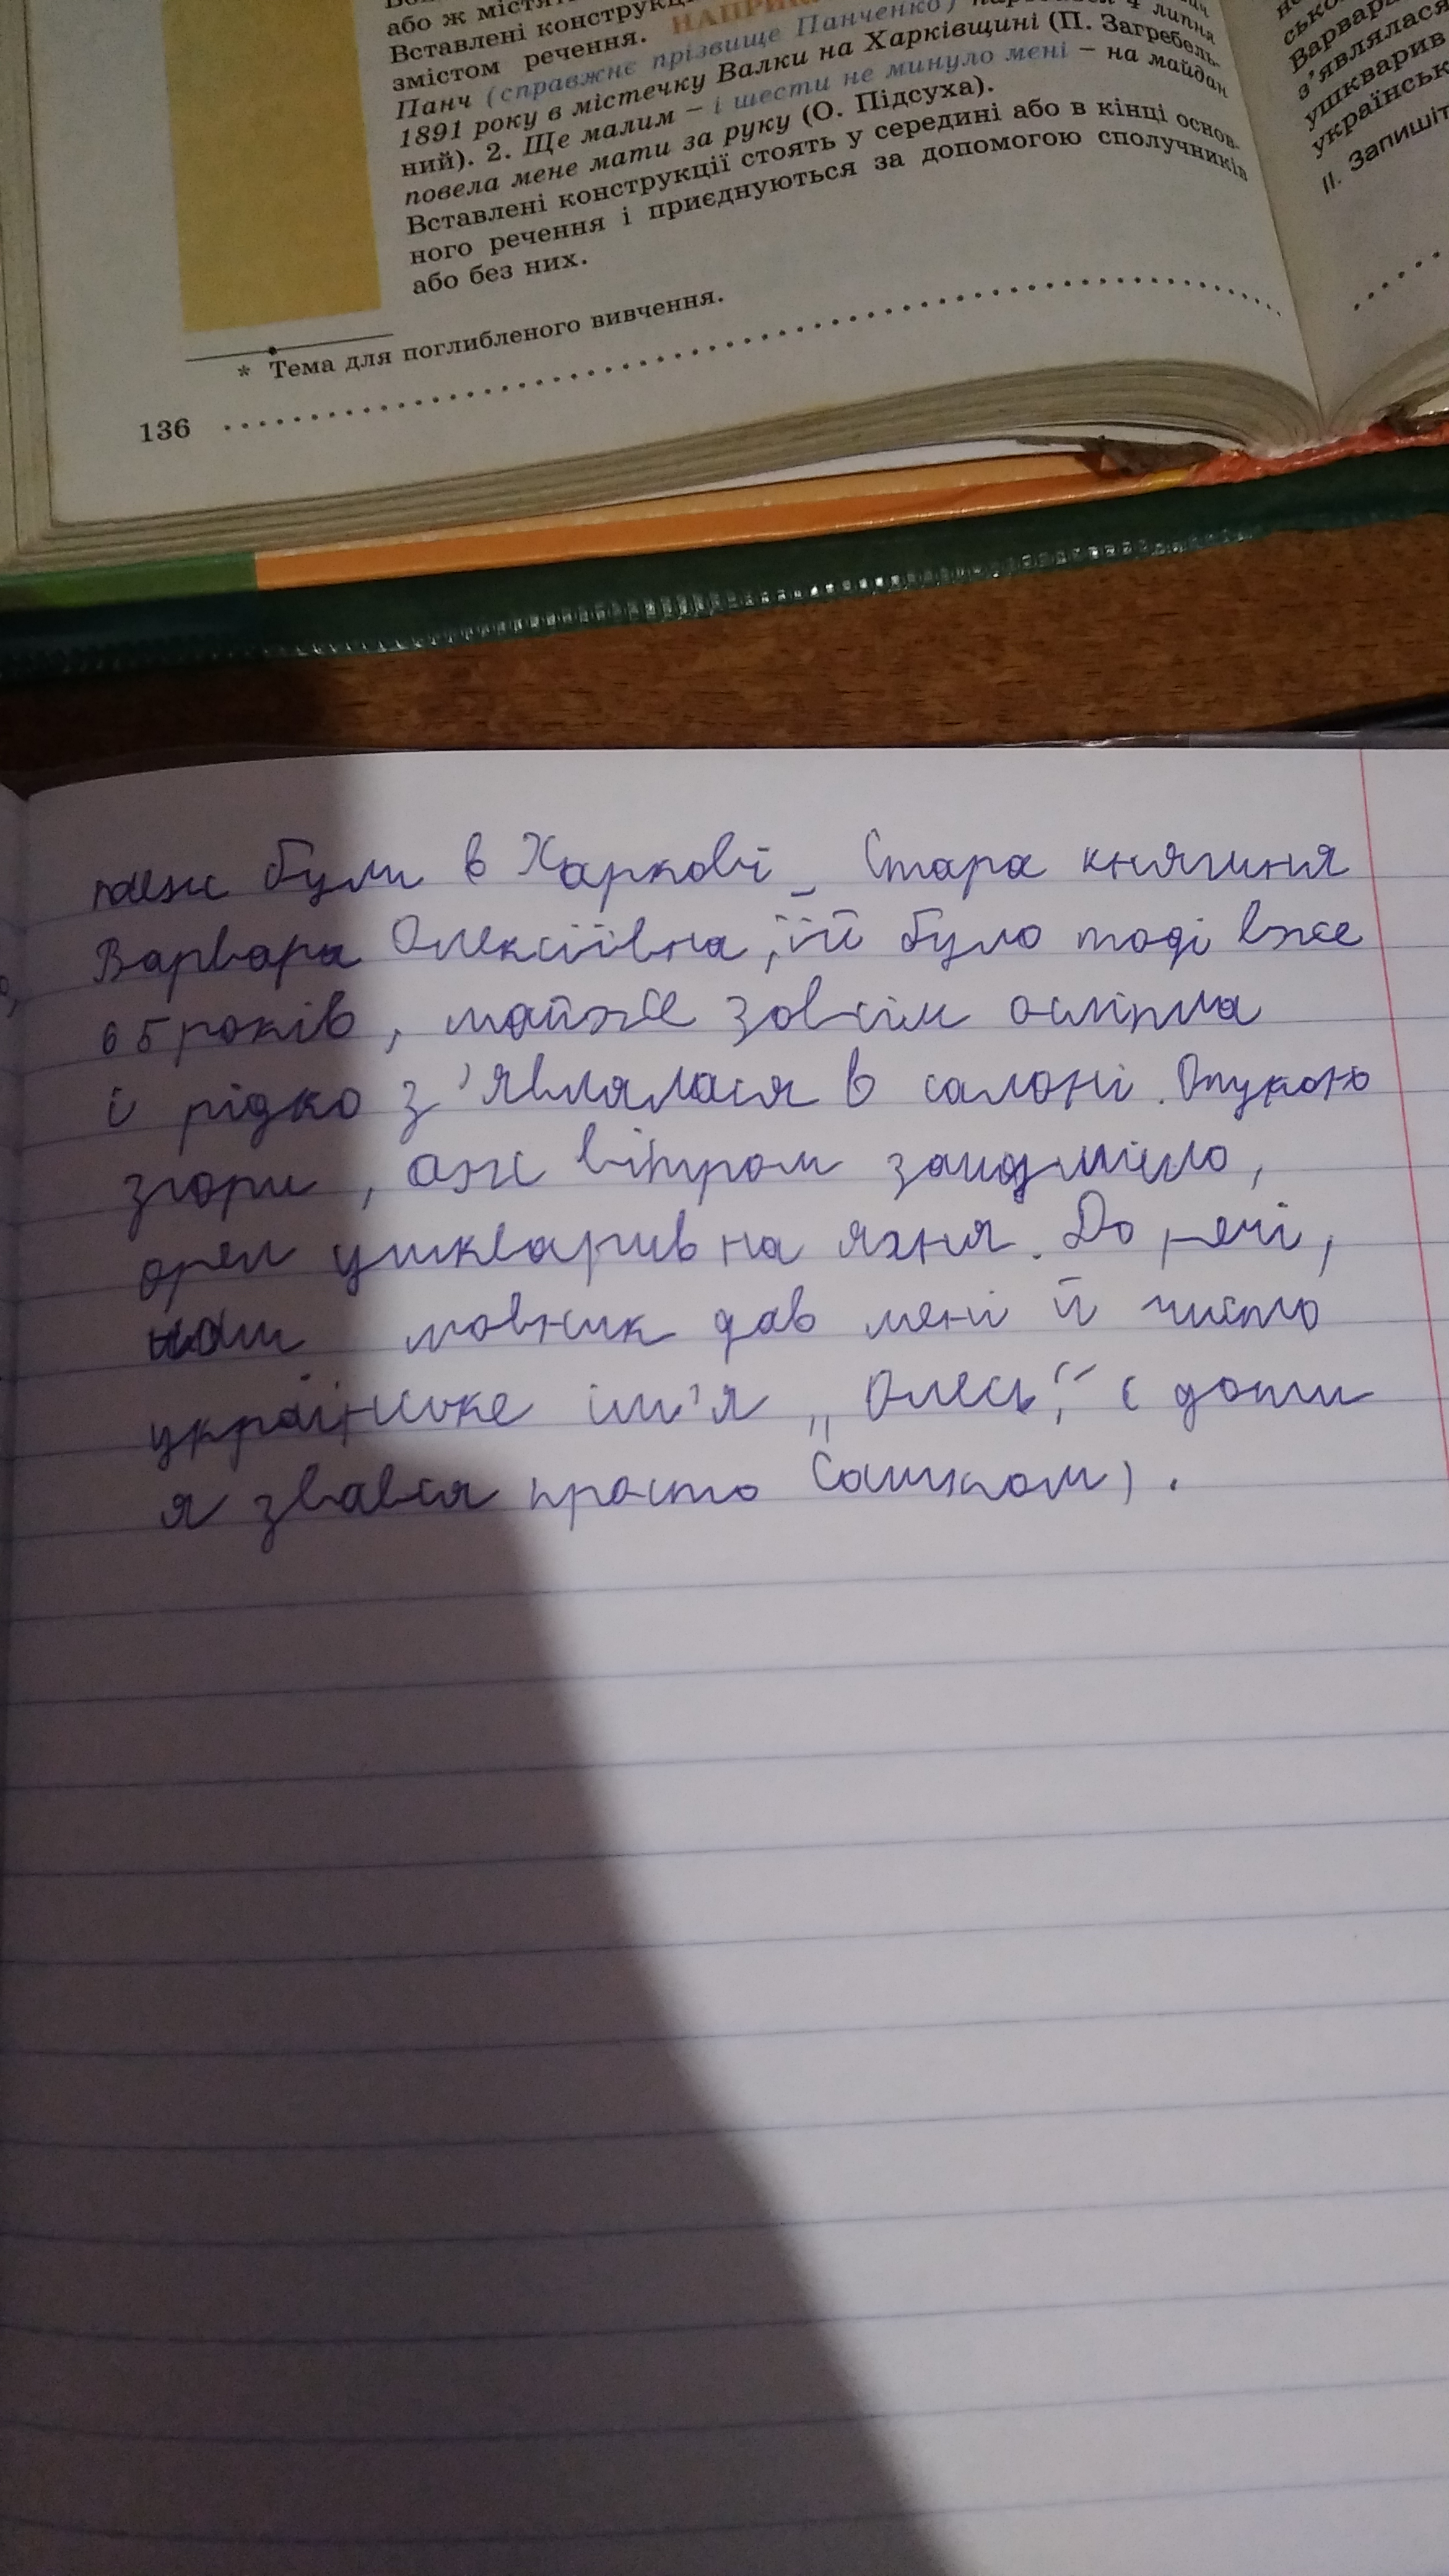 або ж містят
Вставлені конструкц
змістом речення. НАПРИК
Панч (справжнє прізвище Панченко) 4 липня
1891 року в містечку Валки на Харківщині (П. Загребель-
ний). 2. Ще малим – і шести не минуло мені – на майдан
повела мене мати за руку (О. Підсуха).
Вставлені конструкції стоять у середині або в кінці основ-
ного речення і приєднуються за допомогою сполучників
або без них.
* Тема для поглибленого вивчення.
136
сько
Варвара
з'являлася
ушкварив
українськ
II. Запишіт
теж були в Харкові _ Стара княгиня
Варвара Олексіївна, їй було тоді вже
65 років, майже зовсім осліпла
і рідко з'являлася в салоні. Опукою
згори, аж вітром зашуміло,
орел ушкварив на ягня. До речі,
наш мовник дав мені й чисто
українське ім'я „Олесь", ( доти
я звався просто Сашком) .